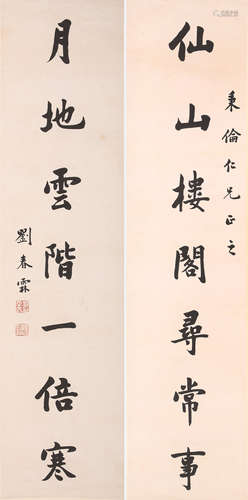 秉倫仁兄正之
仙山樓閣尋常事
月地雲階一倍寒
劉春霖